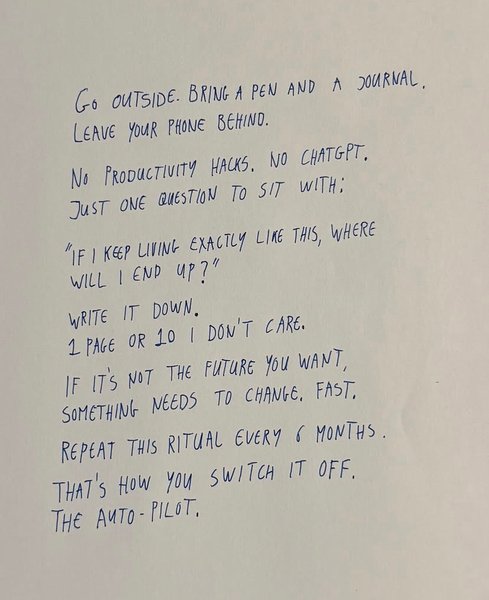 GO OUTSIDE. BRING A PEN AND A JOURNAL.
LEAVE YOUR PHONE BEHIND.
NO PRODUCTIVITY HACKS. NO CHATGPT.
JUST ONE QUESTION TO SIT WITH:
"IF I KEEP LIVING EXACTLY LIKE THIS, WHERE
WILL I END UP?"
WRITE IT DOWN.
1 PAGE OR 10 I DON'T CARE.
IF IT'S NOT THE FUTURE YOU WANT,
SOMETHING NEEDS TO CHANGE. FAST.
REPEAT THIS RITUAL EVERY 6 MONTHS.
THAT'S HOW YOU SWITCH IT OFF.
THE AUTO-PILOT.